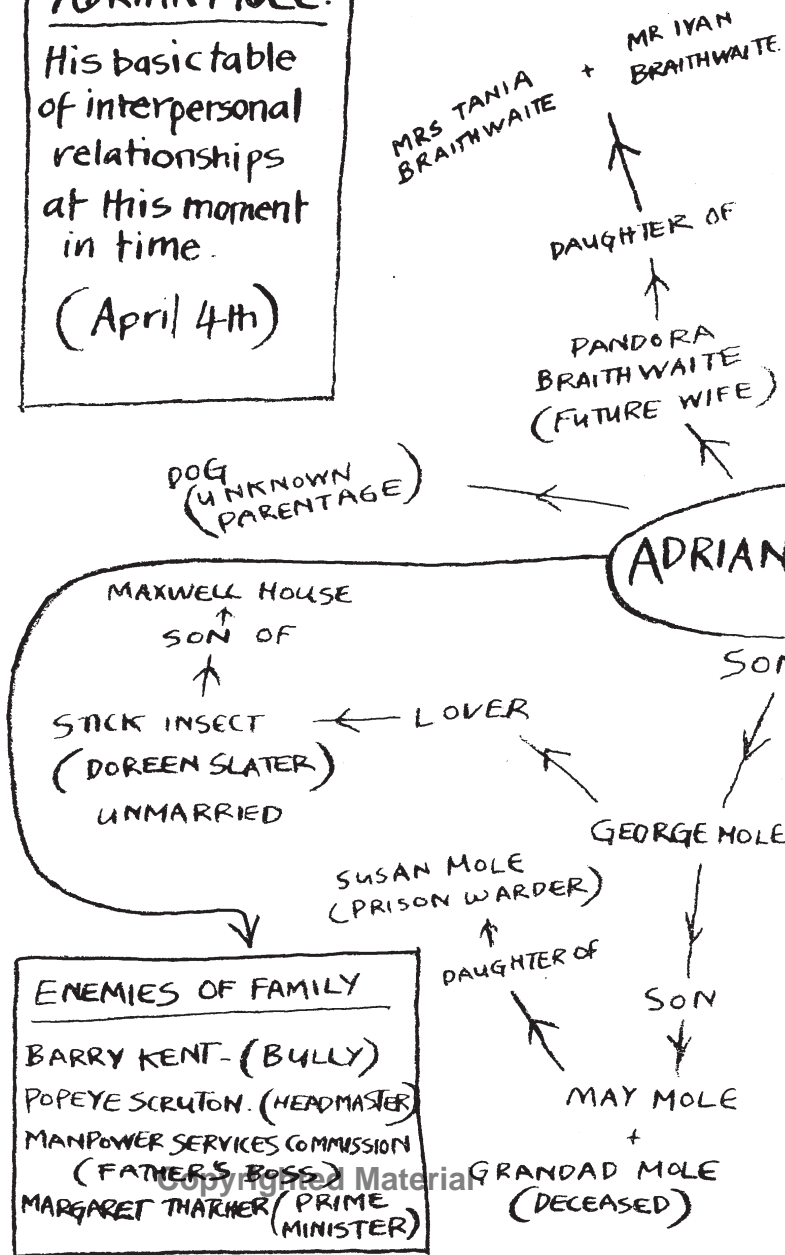 ADRIAN MOLE:
His basic table
of interpersonal
relationships
at this moment
in time.
(April 4th)
MRS TANIA
BRAITHWAITE
+
MR IVAN
BRAITHWAITE.
DAUGHTER OF
PANDORA
BRAITHWAITE
(FUTURE WIFE)
DOG
(UNKNOWN
PARENTAGE)
ADRIAN
MAXWELL HOUSE
SON OF
STICK INSECT
(DOREEN SLATER)
UNMARRIED
LOVER
SON
GEORGE MOLE
SUSAN MOLE
(PRISON WARDER)
DAUGHTER OF
SON
MAY MOLE
+
GRANDAD MOLE
(DECEASED)
ENEMIES OF FAMILY
BARRY KENT - (BULLY)
POPEYE SCRUTON. (HEADMASTER)
MANPOWER SERVICES COMMISSION
(FATHER'S BOSS)
MARGARET THATCHER (PRIME
MINISTER)
Copyrighted Material